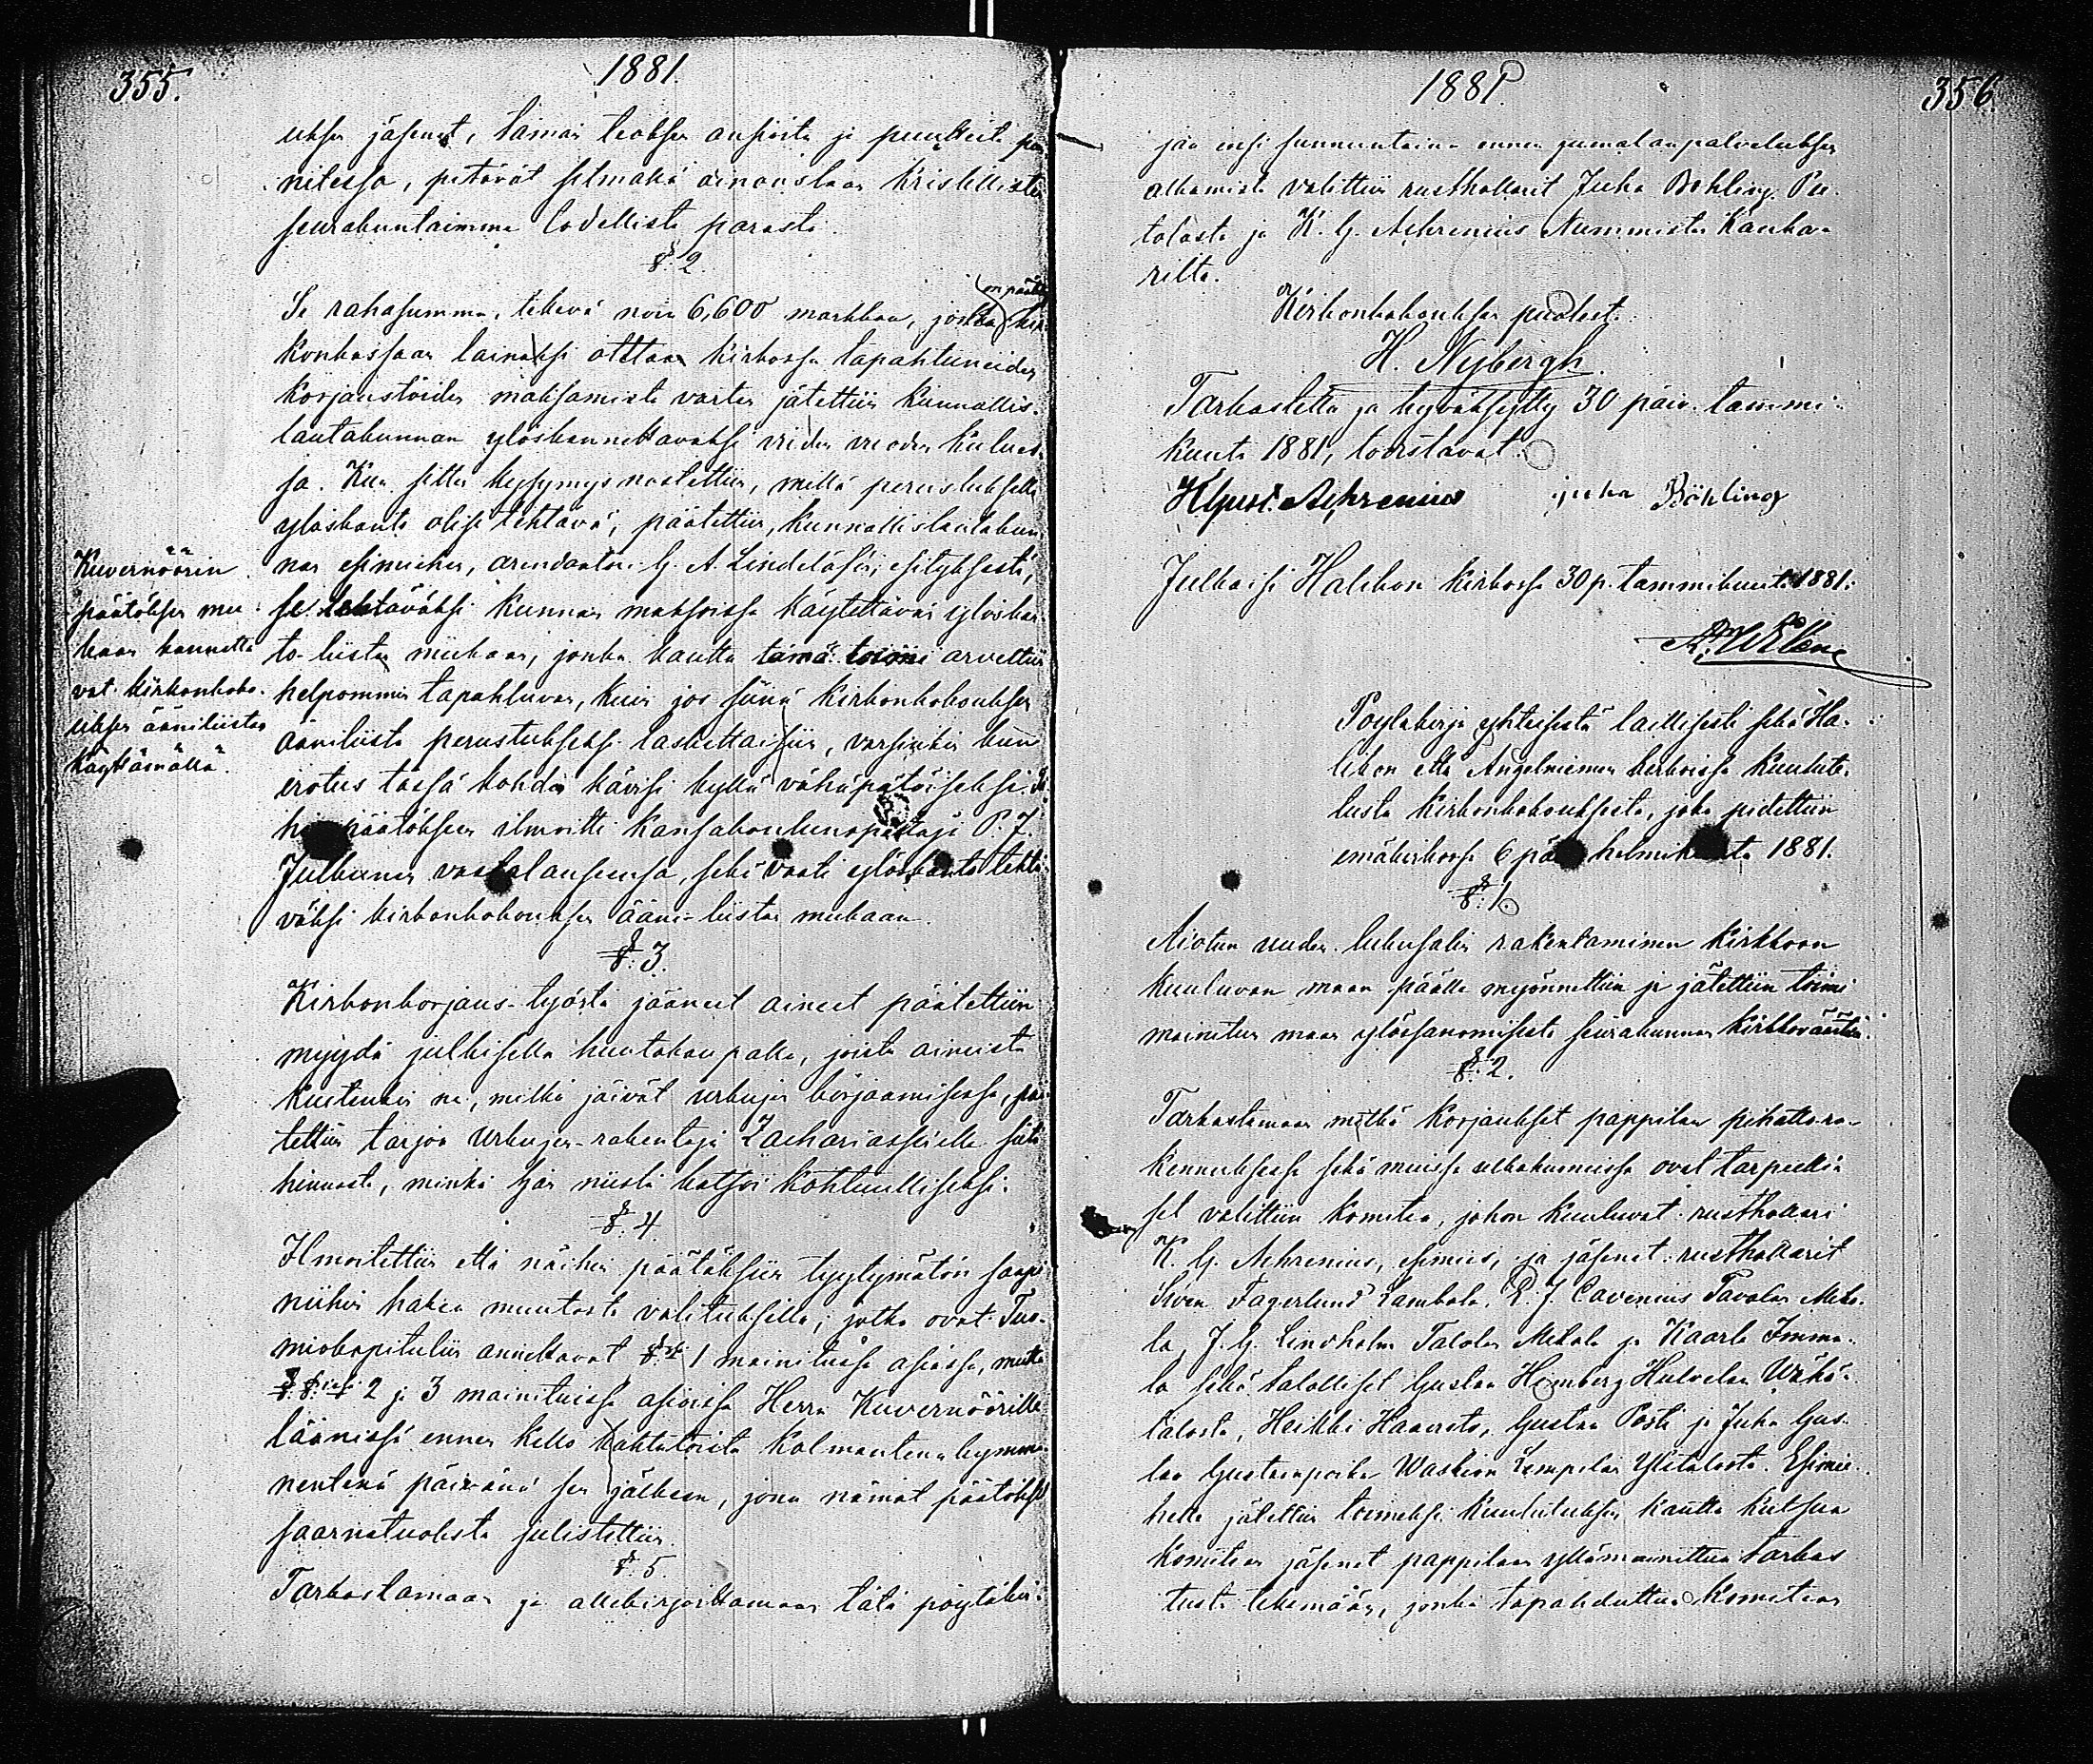 355.
1881.
uksen jäsenet, tämän teoksen ansioita ja puutteita pu
nitessa, pitävät silmällä ainoastaan kristillisen
seurakuntaimme todellista parasta.
§. 2.
Se rahasumma, tekevä noin 6,600 markkaa, jonka on päätetty kir
konkassaan lainaksi ottaa kirkossa tapahtuneiden
korjaustöiden maksamista varten jätettiin kunnallis-
lautakunnan ylöskannettavaksi viiden vuoden kulues-
sa. Kun sitten kysymys nostettiin, millä perustuksella
ylöskanto olisi tehtävä, päätettiin, kunnallislautakun-
nan esimiehen, arendaatori G. A. Lindelöfin, esityksestä,
se tehtäväksi kunnan maksoissa käytettävän ylöskan-
to-listan mukaan, jonka kautta tämä toimi arveltiin
helpommin tapahtuvan, kuin jos siinä kirkonkokouksen
ääniliista perustukseksi laskettaisiin, varsinkin kun
erotus tässä kohden kävisi kyllä vähäpätöiseksi. Tä-
hän päätökseen ilmoitti kansakoulunopettaja P. J.
Julkunen vastalauseensa, sekä vaati ylöskanto tehtä-
väksi kirkonkokouksen ääni-liistan mukaan.
Kuvernöörin
päätöksen mu-
kaan kannetta
vat kirkonkoko-
uksen ääniliistaa
käyttämällä.
§. 3.
Kirkonkorjaus-työstä jääneet aineet päätettiin
myydä julkisella huutokaupalla, joista aineista
kuitenkin ne, mitkä jäivät urkujen korjaamisesta, pää-
tettiin tarjoa urkujen-rakentaja Zachariassenille siitä
hinnasta, minkä hän niistä katsoi kohtuulliseksi.
§. 4
Ilmoitettiin että näihin päätöksiin tyytymätön saapi
niihin hakea muutosta valituksilla, jotka ovat Tuo-
miokapituliin annettavat §:ssä 1 mainitussa asiassa, mutta
§§:issä 2 ja 3 mainituissa asioissa Herra Kuvernöörille
läänissä ennen kello kahtatoista kolmantenakymme-
nentenä päivänä sen jälkeen, jona nämät päätökset
saarnatuolista julistettiin.
§. 5.
Tarkastamaan ja allekirjoittamaan tätä pöytäkir-
1881.
356.
jaa ensi sunnuntaina ennen jumalanpalveluksen
alkamista valittiin rusthollarit Juha Bohling Pu-
tolasta ja K. G. Achrenius Nummisten Kauha-
rilta.
Kirkonkokouksen puolest.
H. Nybergh.
Tarkastettu ja hyväksytty 30 päiv. tammi-
kuuta 1881, todistavat.
K Gust. Achrenius juha Böhling
Julkaisi Halikon kirkossa 30 p. tammikuuta 1881.
Pöytäkirja yhteisestä laillisesti sekä Ha-
likon että Angelniemen kirkoissa kuulute-
tusta kirkonkokouksesta, joka pidettiin
emäkirkossa 6 päiv. helmikuuta 1881.
§. 1.
Aiotun uuden lukusalin rakentaminen kirkkoon
kuuluvan maan päälle myönnettiin ja jätettiin toimi
mainitun maan ylössanomisesta seurakunnan kirkkoväärtin.
§. 2.
Tarkastamaan mitkä korjaukset pappilan pihatto-ra-
kennuksessa sekä muissa ulkohuoneissa ovat tarpeelli-
set valittiin komitea, johon kuuluvat rusthollari
K. G. Achrenius, esimies, ja jäsenet rusthollarit
Sven Fagerlund Lambola, E. J. Cavenius Tavolan Meko-
la, J. G. Lindholm Talolan Mekola ja Kaarlo Imma-
la sekä talolliset Gustaa Hemberg Hulvelan Wähä-
talosta, Heikki Haaersto, Gustaa Posti ja Juha Gus-
taa Gustaanpoika Waskion Lempilän Ylitalosta. Esimie-
helle jätettiin toimeksi kuulutuksen kautta kutsua
komitean jäsenet pappilaan yllämainittua tarkas
tusta tekemään, jonka tapahduttua komitean